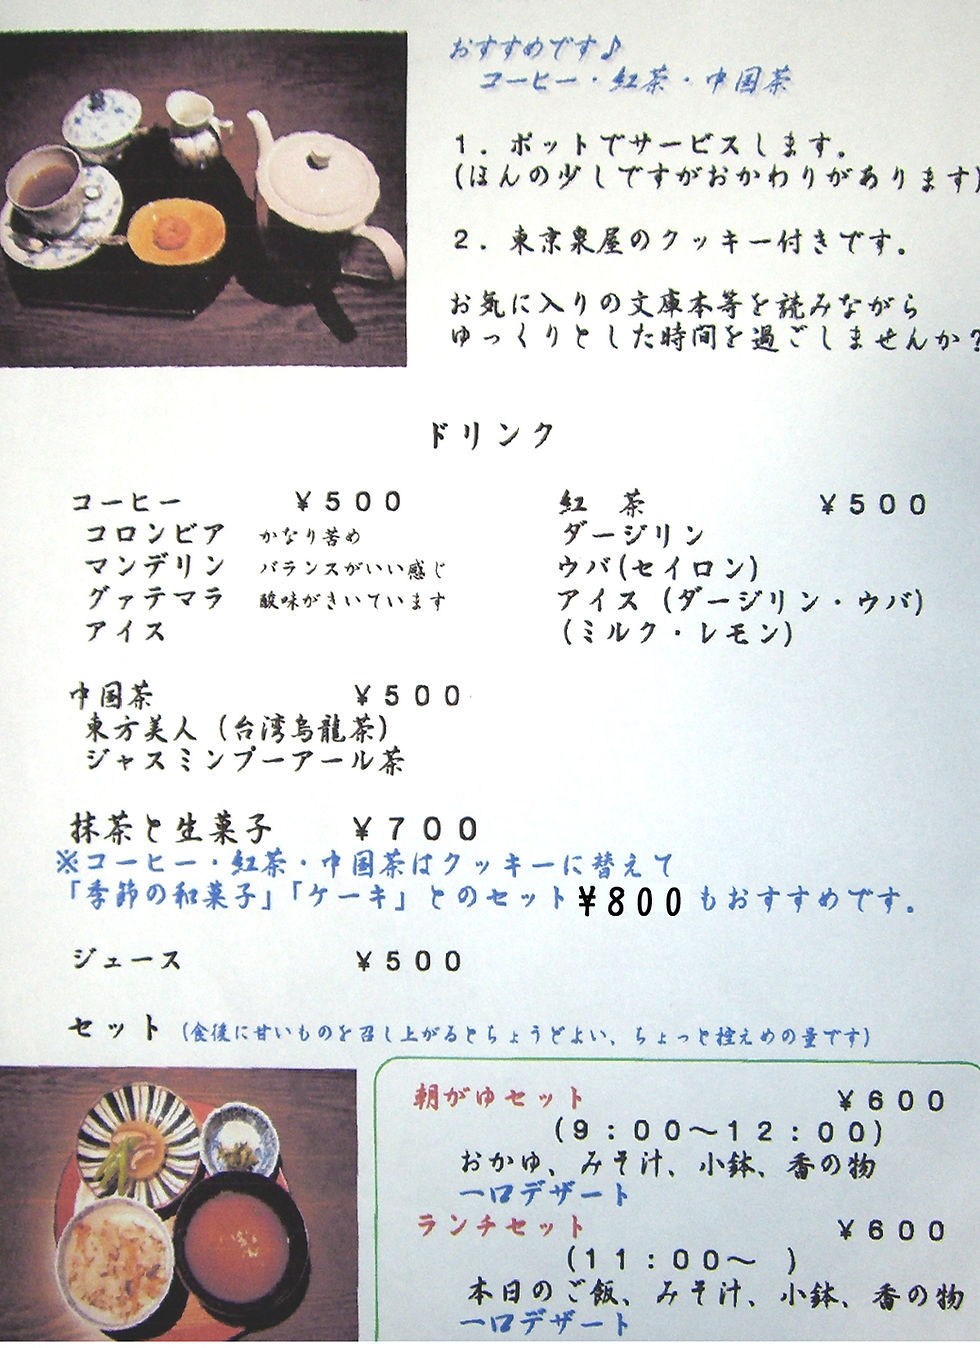 おすすめです♪
コーヒー・紅茶・中国茶
１．ポットでサービスします。
(ほんの少しですがおかわりがあります)
２．東京泉屋のクッキー付きです。
お気に入りの文庫本等を読みながら
ゆっくりとした時間を過ごしませんか？
ドリンク
コーヒー ￥５００
コロンビア かなり苦め
マンデリン バランスがいい感じ
グァテマラ 酸味がきいています
アイス
紅 茶 ￥５００
ダージリン
ウバ(セイロン)
アイス（ダージリン・ウバ）
（ミルク・レモン）
中国茶 ￥５００
東方美人（台湾烏龍茶）
ジャスミンプーアール茶
抹茶と生菓子 ￥７００
※コーヒー・紅茶・中国茶はクッキーに替えて
「季節の和菓子」「ケーキ」とのセット￥８００もおすすめです。
ジュース ￥５００
セット（食後に甘いものを召し上がるとちょうどよい、ちょっと控えめの量です）
朝がゆセット ￥６００
（９：００～１２：００）
おかゆ、みそ汁、小鉢、香の物
一口デザート
ランチセット ￥６００
（１１：００～ ）
本日のご飯、みそ汁、小鉢、香の物
一口デザート